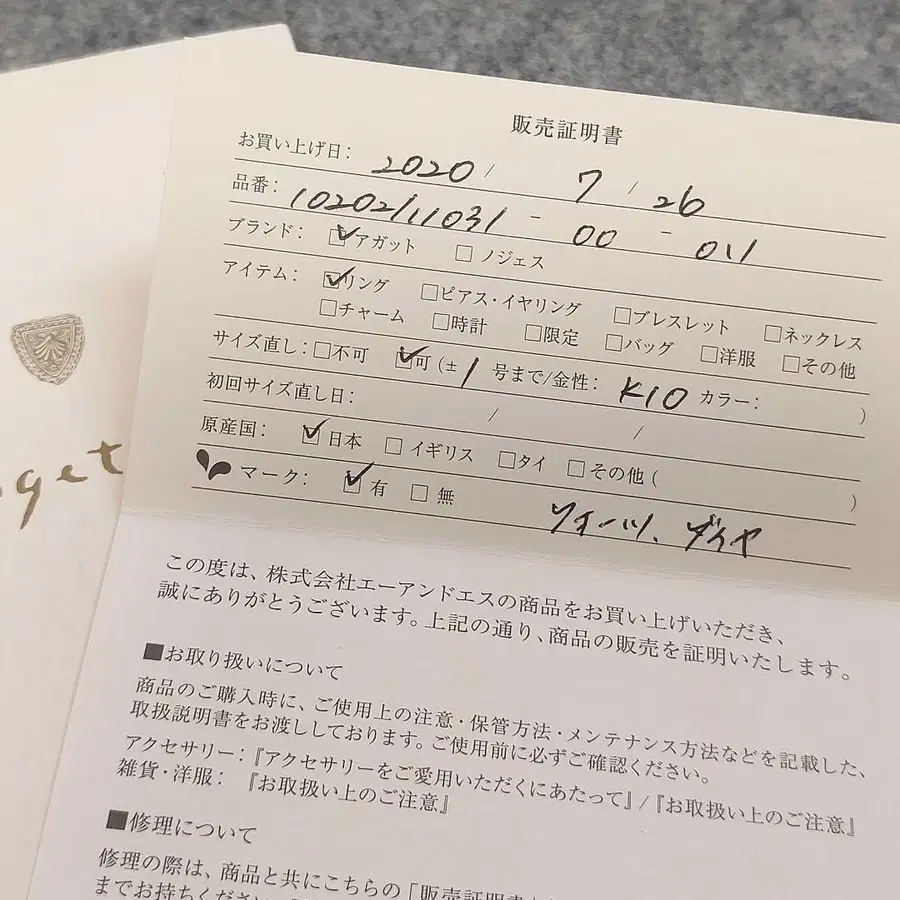 販売証明書
お買い上げ日: 2020 / 7 / 26
品番: 10202111031 - 00 - 011
ブランド: ☑アガット □ ノジェス
アイテム: ☑リング □ピアス・イヤリング □ブレスレット □ネックレス
□チャーム □時計 □限定 □バッグ □洋服 □その他
サイズ直し: □不可 ☑可 (± 1 号まで/金性: K10 カラー: )
初回サイズ直し日: / /
原産国: ☑日本 □ イギリス □タイ □その他 ( )
マーク: ☑ 有 □ 無
クォーツ、ダイヤ
この度は、株式会社エーアンドエスの商品をお買い上げいただき、
誠にありがとうございます。上記の通り、商品の販売を証明いたします。
■お取り扱いについて
商品のご購入時に、ご使用上の注意・保管方法・メンテナンス方法などを記載した、
取扱説明書をお渡ししております。ご使用前に必ずご確認ください。
アクセサリー:『アクセサリーをご愛用いただくにあたって』/『お取扱い上のご注意』
雑貨・洋服: 『お取扱い上のご注意』
■修理について
修理の際は、商品と共にこちらの「販売証明書
までお持ちください
get